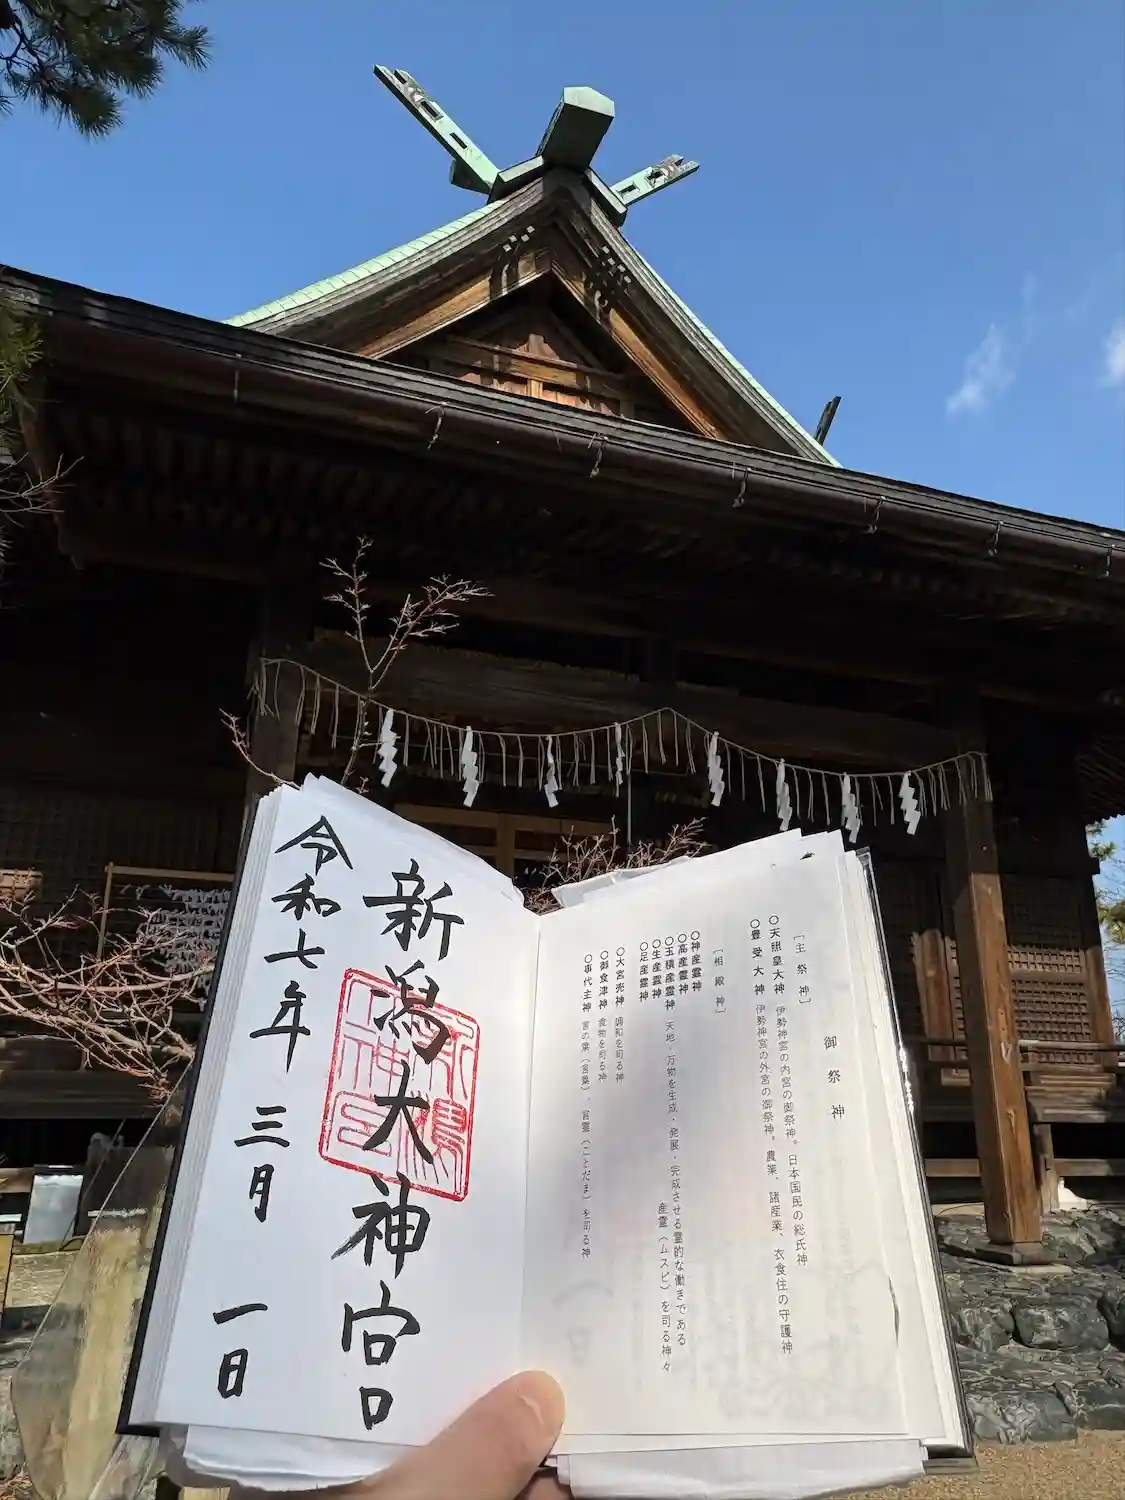 御祭神
［主祭神］
○天照皇大神 伊勢神宮の内宮の御祭神。日本国民の総氏神
○豊受大神 伊勢神宮の外宮の御祭神。農業、諸産業、衣食住の守護神
［相殿神］
○神産霊神
○高産霊神
○玉積産霊神
○生産霊神
○足産霊神
天地・万物を生成・発展・完成させる霊的な働きである
産霊（ムスビ）を司る神々
○大宮売神 調和を司る神
○御食津神 食物を司る神
○事代主神 言の葉（言葉）、言霊（ことだま）を司る神
新潟大神宮
令和七年 三月 一日